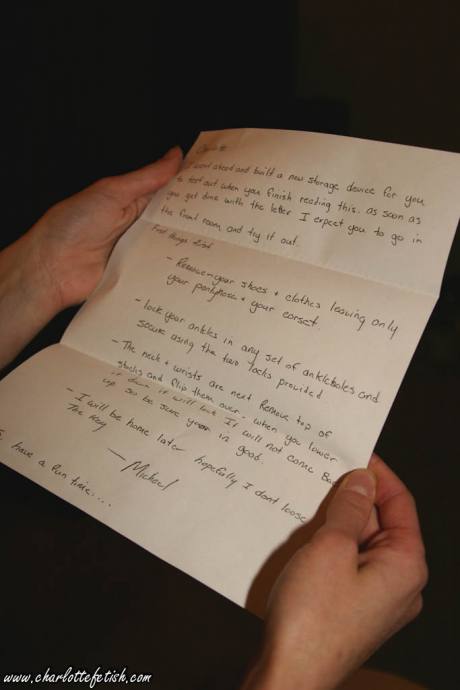 Charlotte
I went ahead and built a new storage device for you
to test out when you finish reading this. as soon as
you get done with the letter I expect you to go in
the front room and try it out.
First things 1st
- Remove your shoes + clothes leaving only
your pantyhose + your corset
- lock your ankles in any set of ankleholes and
secure using the two locks provided
- The neck + wrists are next Remove top of
stocks and flip them over - when you lower
it down it will lock It will not come Back
up so be sure your in good.
- I will be home later hopefully I dont loose
The key
— Michael
have a fun time....
www.charlottefetish.com